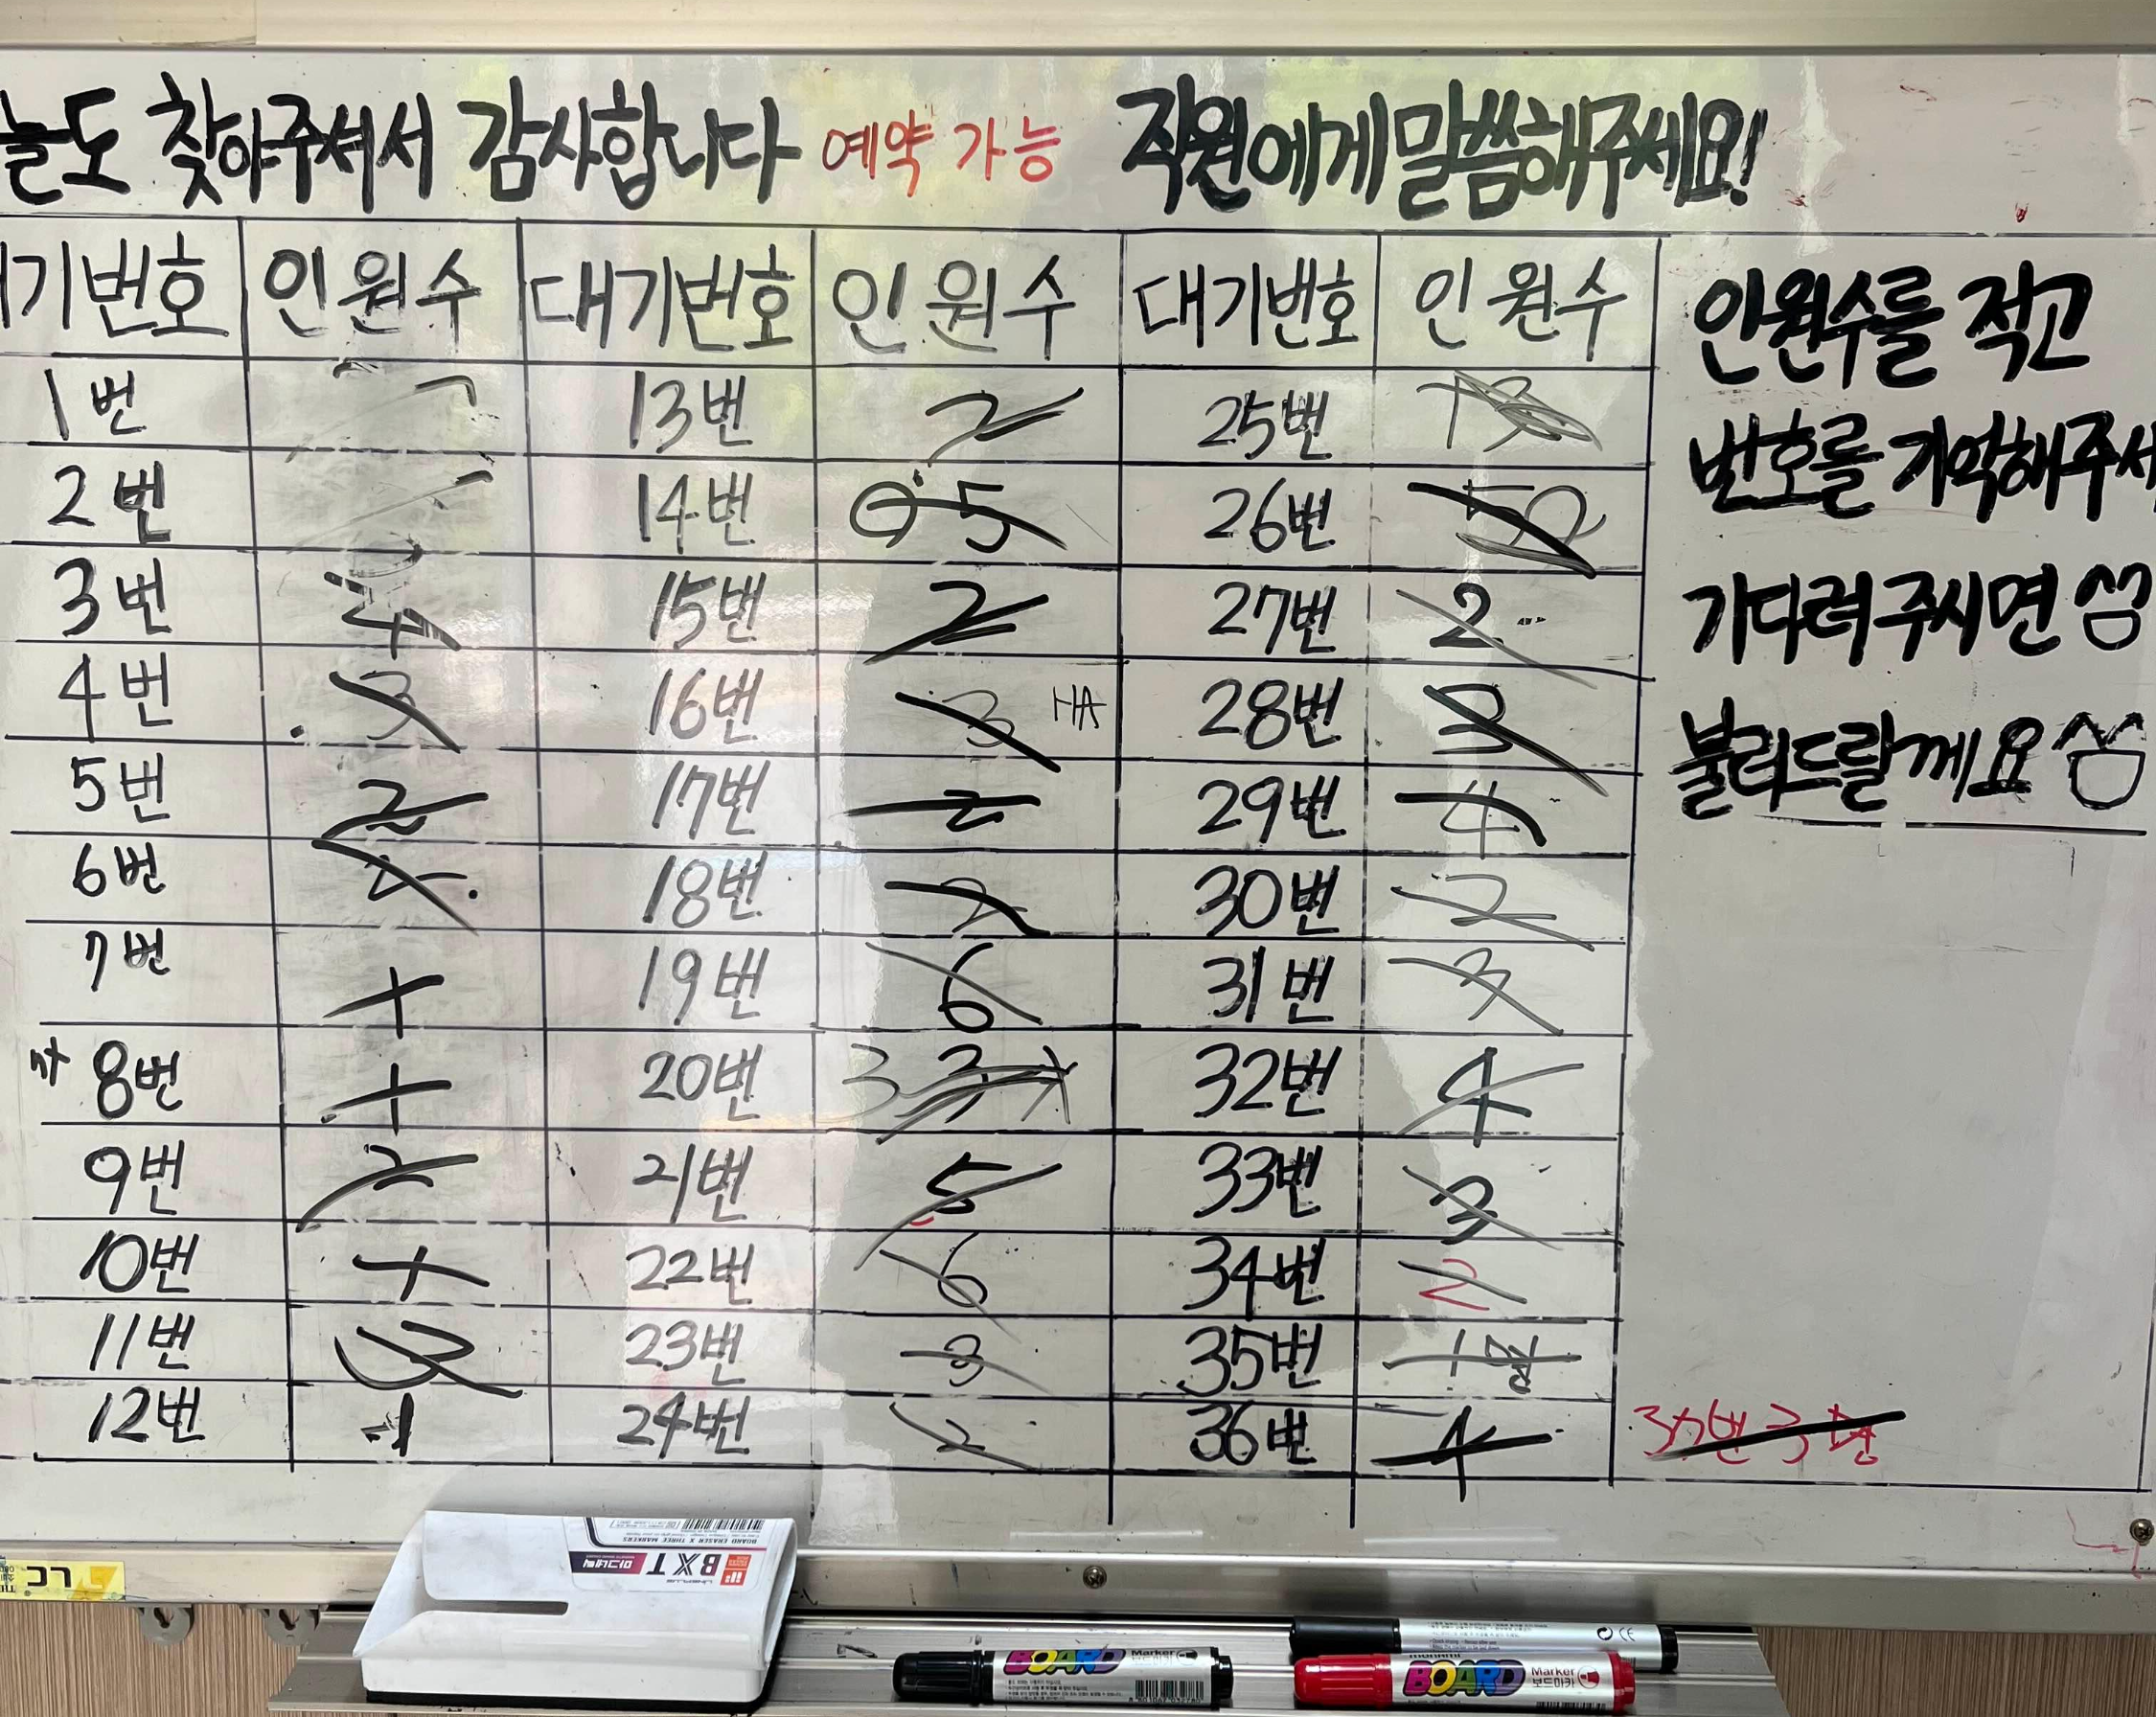 늘도 찾아주셔서 감사합니다 예약 가능 직원에게 말씀해주세요!
기번호 인원수 대기번호 인원수 대기번호 인원수
인원수를 적고
번호를 기억해주셔
기다려주시면
불러드릴께요
1번 13번 2 25번
2번 14번 5 26번
3번 4 15번 2 27번 2
4번 3 16번 3 28번 3
5번 2 17번 2 29번 4
6번 18번 2 30번 2
7번 19번 6 31번 3
8번 20번 3 3 32번 4
9번 2 21번 5 33번 3
10번 22번 6 34번 2
11번 3 23번 3 35번
12번 1 24번 2 36번 4
37번 3
BOARD ERASER X THREE MARKERS
BXT 마그네틱
LC
BOARD Marker 보드마카
monami
BOARD Marker 보드마카
CE